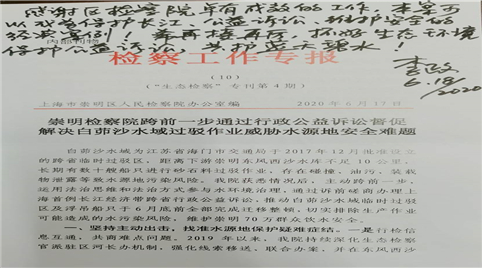 感谢区检察院卓有成效的工作,本案可
以成为保护长江、公益诉讼、维护安全的
经典案例!希再接再厉,抓好生态环境
保护公益诉讼,共护蓝天碧水!
李政
6.18/2020
内部刊物
检察工作专报
(10)
(“生态检察”专刊第4期)
上海市崇明区人民检察院办公室编 2020年6月17日
崇明检察院跨前一步通过行政公益诉讼督促
解决白茆沙水域过驳作业威胁水源地安全难题
白茆沙水域为江苏省海门市交通局于2017年12月批准设立
的跨省临时过驳区,距离下游崇明东风西沙水库不足10公里,
长期有数十艘船只进行砂石料过驳作业,存在碰撞、油污、装载
物泄露等数水源地污染风险。我院获悉情况后,主动跨前一步,
运用法治思维和法治方式参与水环境治理,通过诉前磋商办理上
海首例长江经济带跨省行政公益诉讼,推动白茆沙水域临时过驳
区及浮吊船只于6月底前全部完成迁移整顿,切实排除生产作业
可能造成的水污染风险,维护崇明70万群众饮水安全。
一、坚持主动出击,找准水源地保护疑难症结。一是行检信
息互通,共商难点问题。2019年以来,我院持续深化生态检察
官派驻区河长办机制,强化线索移送、联合办案,并在东风西沙